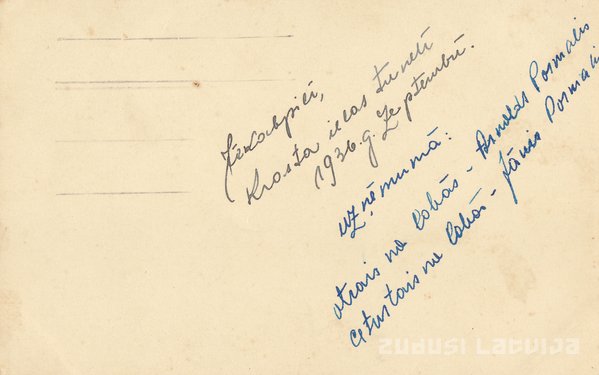 Jēkabpilī,
Krasta ielas tunelī
1936.g. Septembrī.
uzņēmumā:
otrais no labās - Arnolds Posmalis
ceturtais no labās - Jānis Posmali
ZUDUSĪ LATVIJA